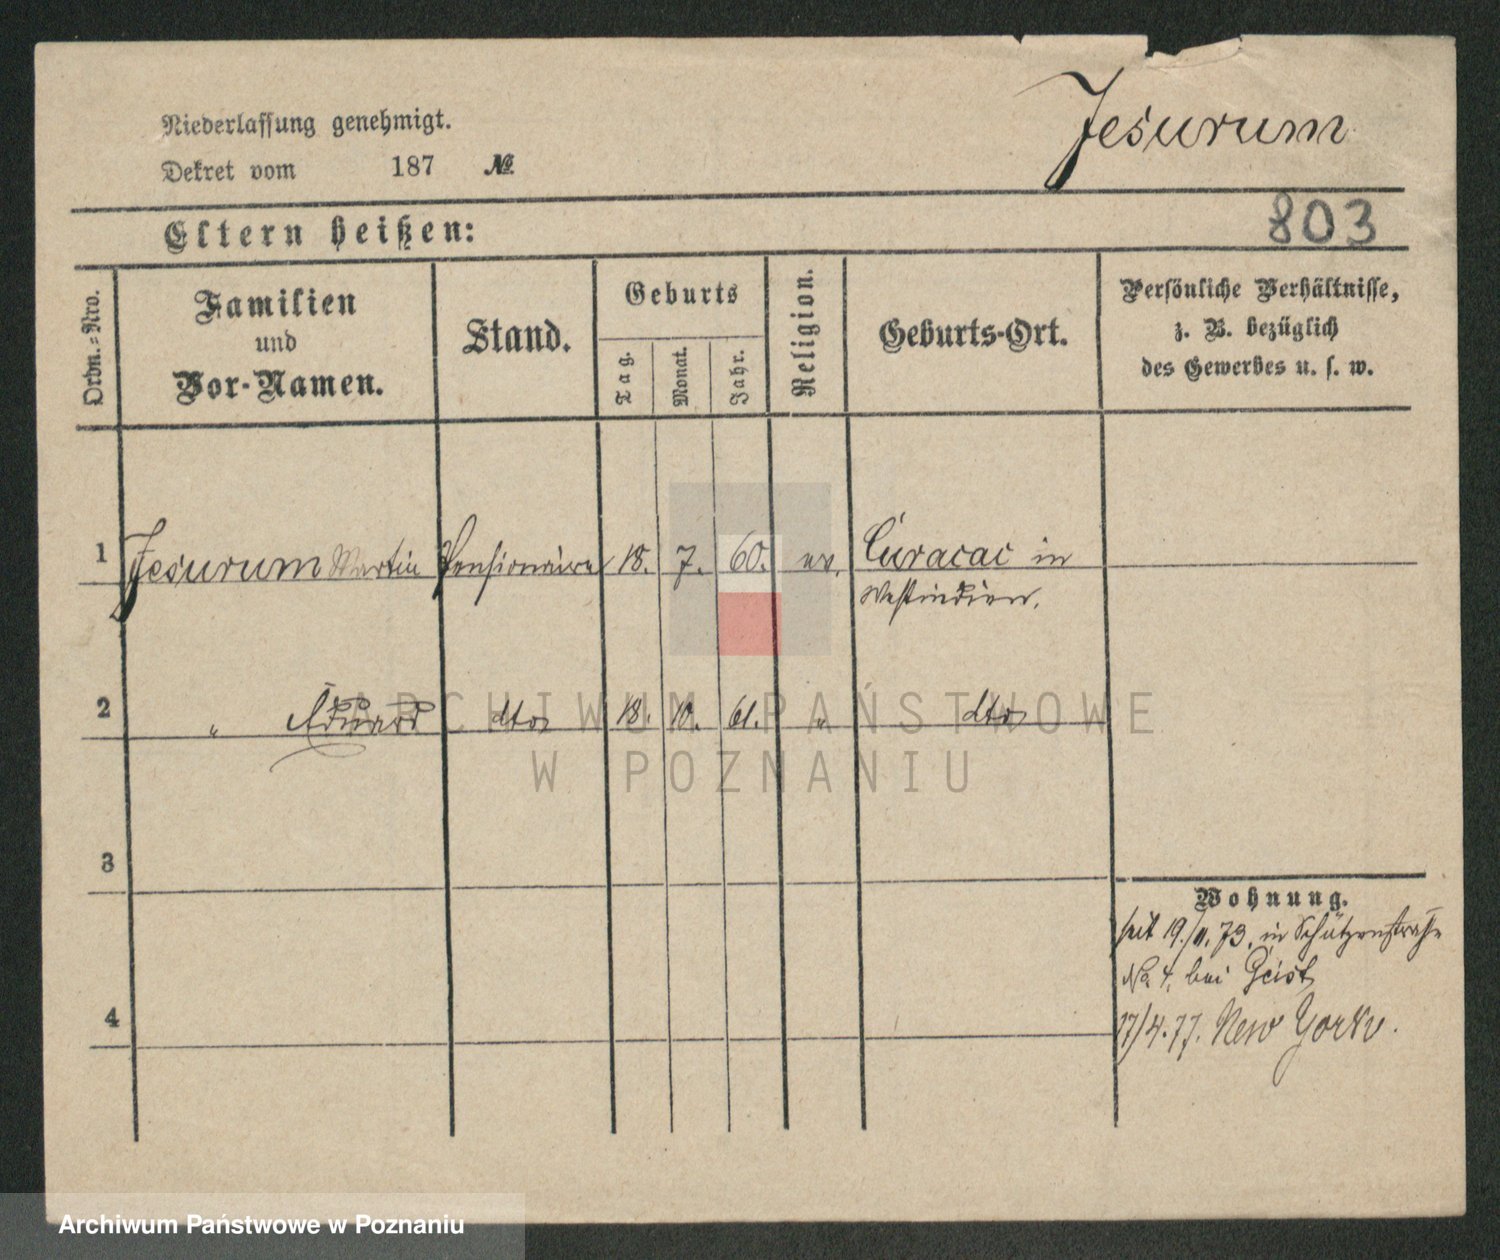 Niederlassung genehmigt.
Dekret vom 187 №
Jesurum
Eltern heißen:
803
Ordn.-Nro.
Familien
und
Vor-Namen.
Stand.
Geburts
Tag.
Monat.
Jahr.
Religion.
Geburts-Ort.
Persönliche Verhältnisse,
z. B. bezüglich
des Gewerbes u. s. w.
1 Jesurum Martin Pensionaire 18. 7. 60. ev. Curacac in
Westindien.
2 " Eduard dto 18. 10. 61. " dto
ARCHIWUM PAŃSTWOWE
W POZNANIU
3
Wohnung.
seit 19./11. 73. in Schützenstraße
No 4. bei Geist
4
17/4. 77. New York.
Archiwum Państwowe w Poznaniu